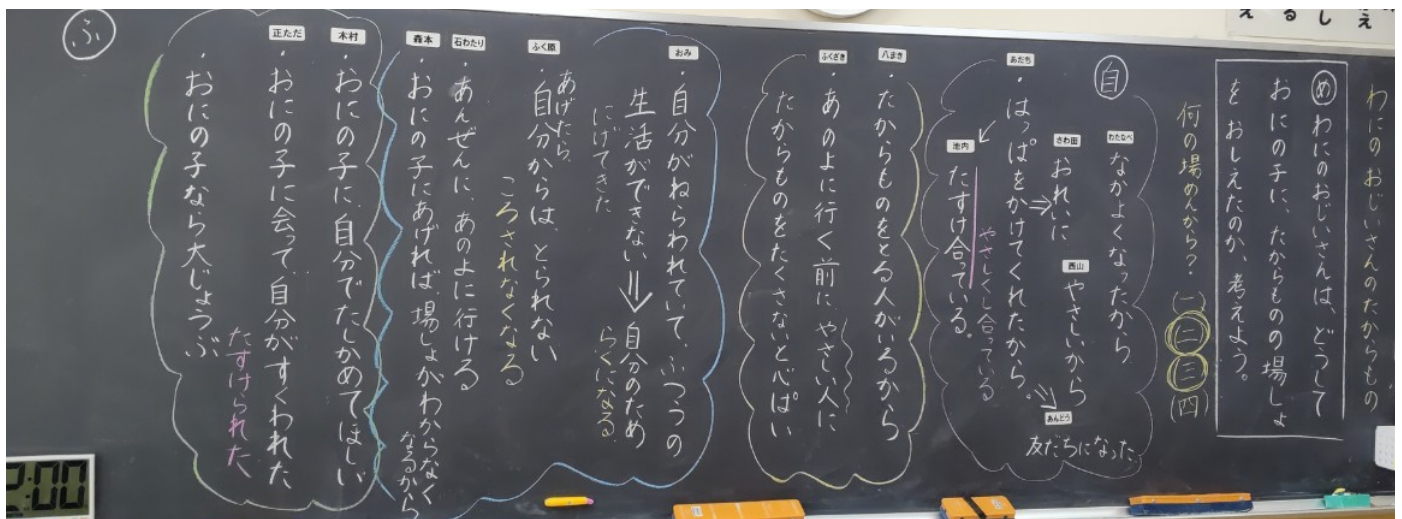 わにのおじいさんのたからもの
め わにのおじいさんは、どうして
おにの子に、たからものの場しょ
を おしえたのか、考えよう。
何の場めんから?
(一)
二
三
(四)
自
わたなべ
なかよくなったから
さわ田
おれいに
西山
やさしいから
あんどう
友だちになった
あだち
・はっぱをかけてくれたから。
やさしくし合っている
池内
たすけ合っている。
八まき
・たからものをとる人がいるから
ふくざき
・あのよに行く前に、やさしい人に
たからものをたくさないと心ぱい
おみ
・自分がねらわれていて、ふつうの
生活ができない⇒自分のため
にげてきた
らくになる
ふく原
あげたら、
・自分からは、とられない
ころされなくなる
石わたり
・あんぜんに、あのよに行ける
森本
・おにの子にあげれば、場しょがわからなく
なるから
木村
・おにの子に、自分でたしかめてほしい
正ただ
・おにの子に会って、自分がすくわれた
たすけられた
・おにの子なら大じょうぶ
ふ
:00